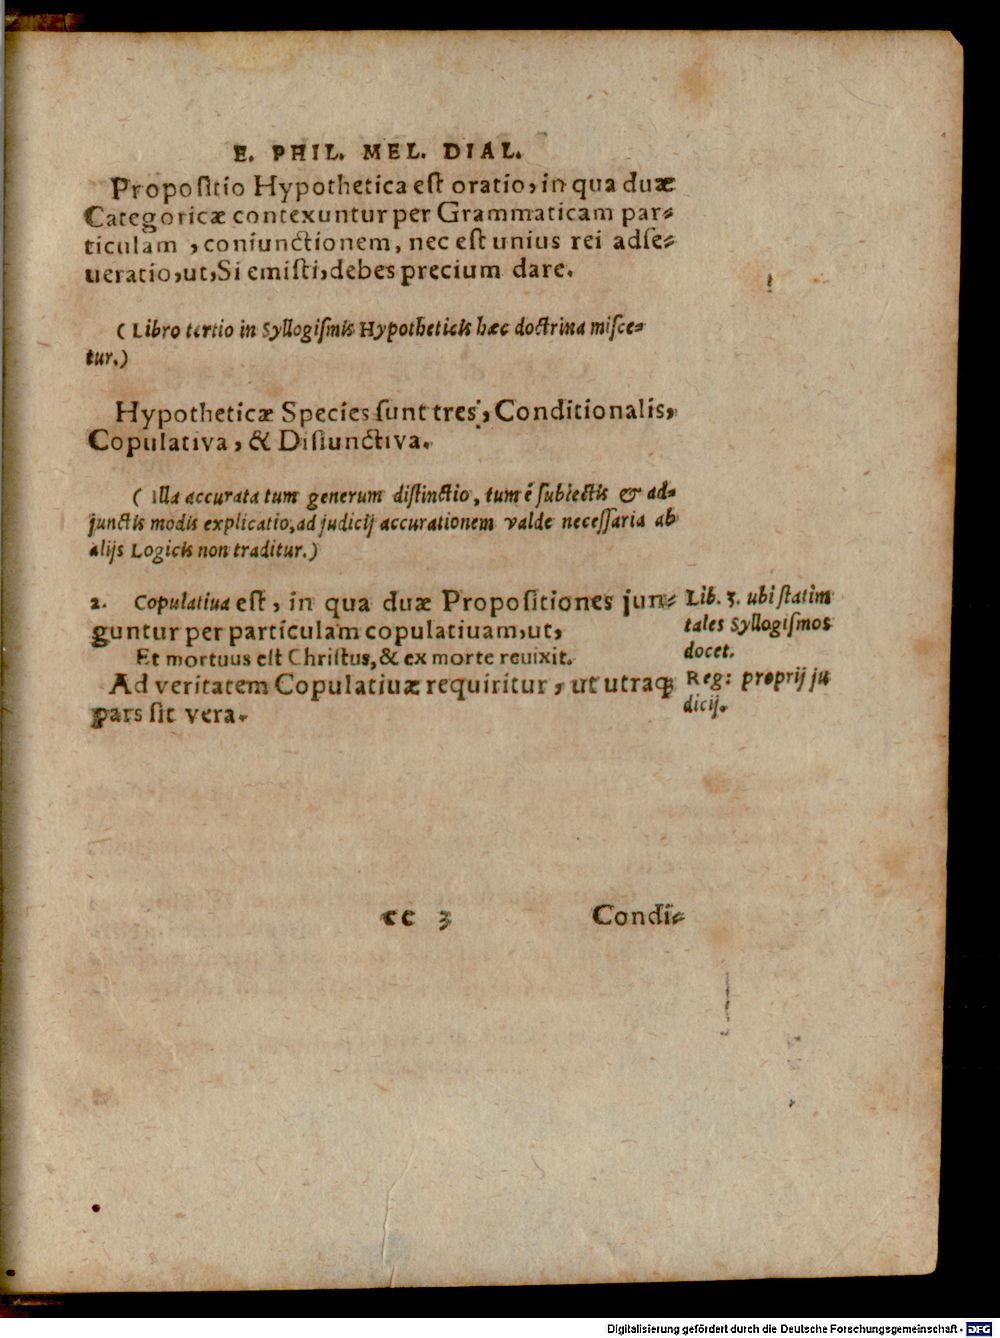 E. PHIL. MEL. DIAL.
Propoſitio Hypothetica eſt oratio, in qua duæ
Categoricæ contexuntur per Grammaticam par⸗
ticulam, coniunctionem, nec eſt unius rei adſe⸗
ueratio, ut, Si emiſti, debes precium dare.
(Libro tertio in Syllogiſmis Hypotheticis hæc doctrina miſce⸗
tur.)
Hypotheticæ Species ſunt tres, Conditionalis,
Copulativa, & Diſiunctiva.
(Illa accurata tum generum diſtinctio, tum è ſubiectis & ad⸗
junctis modis explicatio, ad judicij accurationem valde neceſſaria ab
alijs Logicis non traditur.)
2. Copulatiua eſt, in qua duæ Propoſitiones jun⸗
guntur per particulam copulatiuam, ut,
Et mortuus eſt Chriſtus, & ex morte reuixit.
Ad veritatem Copulatiuæ requiritur, ut utraq;
pars ſit vera.
Lib. 3. ubi ſtatim
tales Syllogiſmos
docet.
Reg: proprij ju
dicij.
cc 3
Condi⸗
Digitalisierung gefördert durch die Deutsche Forschungsgemeinschaft - DFG